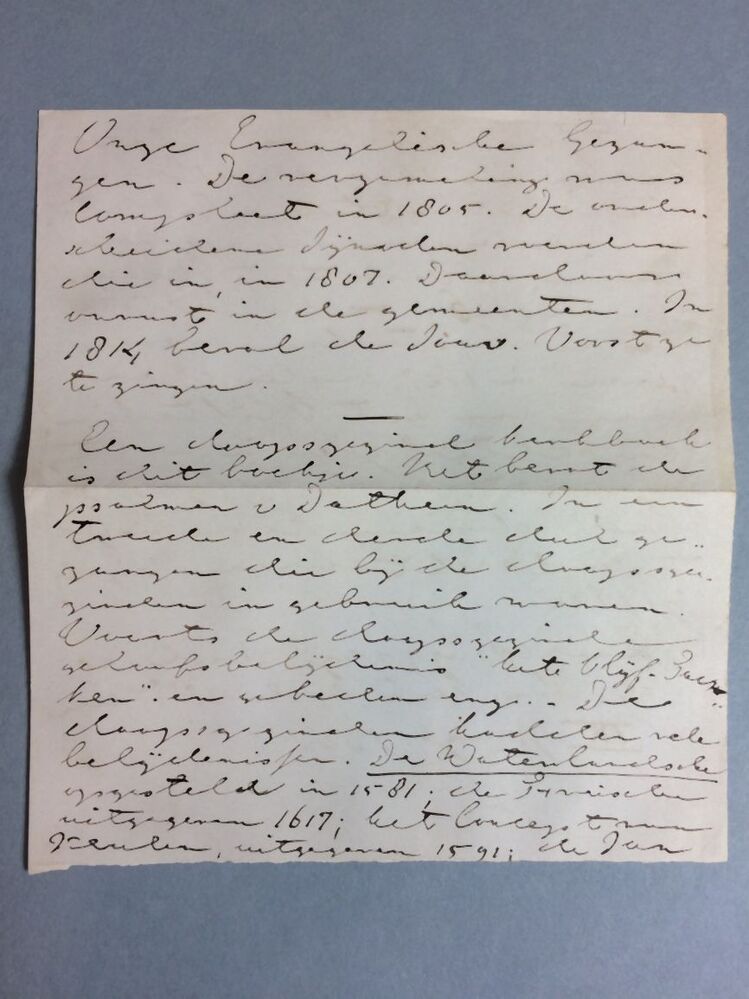 Onze Evangelische Gezan-
gen. De verzameling was
compleet in 1805. De onder-
scheidene Synoden voerden
die in, in 1807. Daardoor
onrust in de gemeenten. In
1814 beval de Souv. Vorst ze
te zingen.
Een doopsgezind kerkboek
is dit boekje. Het bevat de
psalmen v Datheen. In een
tweede en derde deel ge-
zangen die bij de doopsge-
zinden in gebruik waren.
Voorts de doopsgezinde
geloofsbelijdenis "het Olijf-Tacx-
ken" en gebeden enz. - De
doopsgezinden hadden vele
belijdenissen. De Waterlandsche
opgesteld in 1581; de Friesche
uitgegeven 1617; het Concept van
Keulen, uitgegeven 1591; de Jan